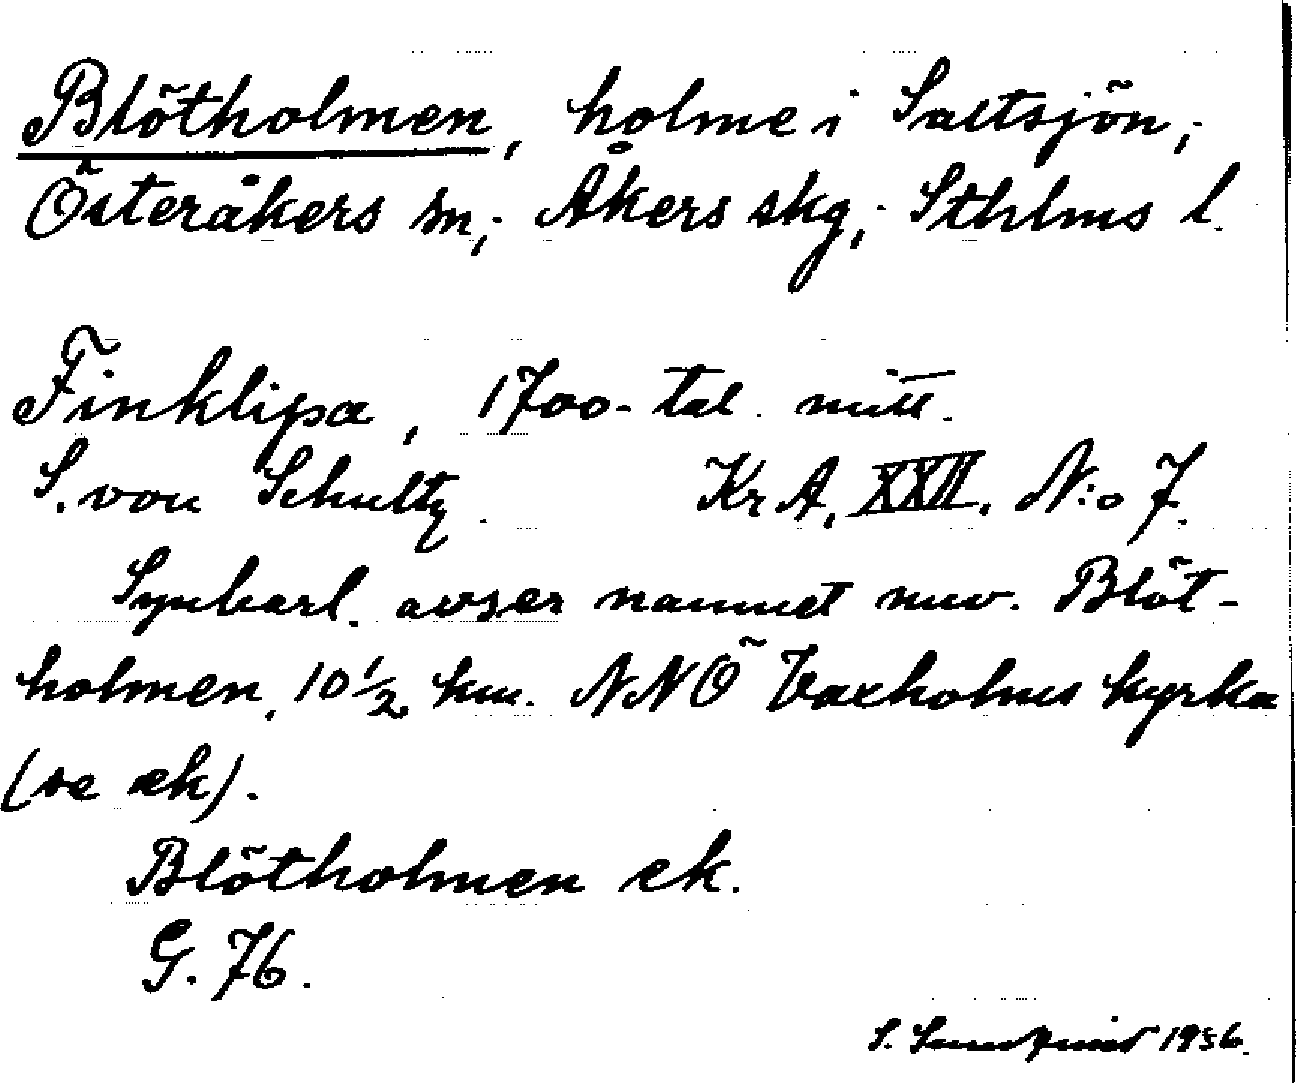 Blötholmen, holme i Saltsjön,
Österåkers sn, Åkers skg, Sthlms l.
Finklipa, 1700-tal. mitt.
S. von Schultz. Kr A, XXII. N:o 7.
Synbarl. avser namnet nuv. Blöt-
holmen, 10 1/2 km. NNÖ Vaxholms kyrka
(se ek).
Blötholmen ek.
G. 76.
S. 1956.